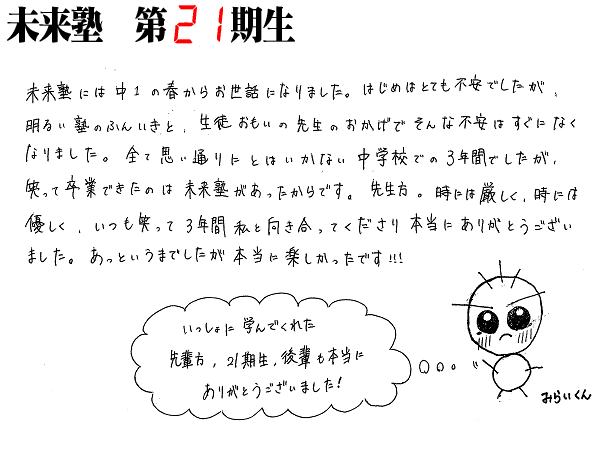 未来塾 第21期生
未来塾には中1の春からお世話になりました。はじめはとても不安でしたが、
明るい塾のふんいきと、生徒おもいの先生のおかげでそんな不安はすぐになく
なりました。全て思い通りにとはいかない中学校での3年間でしたが、
笑って卒業できたのは未来塾があったからです。先生方。時には厳しく、時には
優しく、いつも笑って3年間私と向き合ってくださり本当にありがとうござい
ました。あっというまでしたが本当に楽しかったです!!!
いっしょに学んでくれた
先輩方、21期生、後輩も本当に
ありがとうございました!
みらいくん